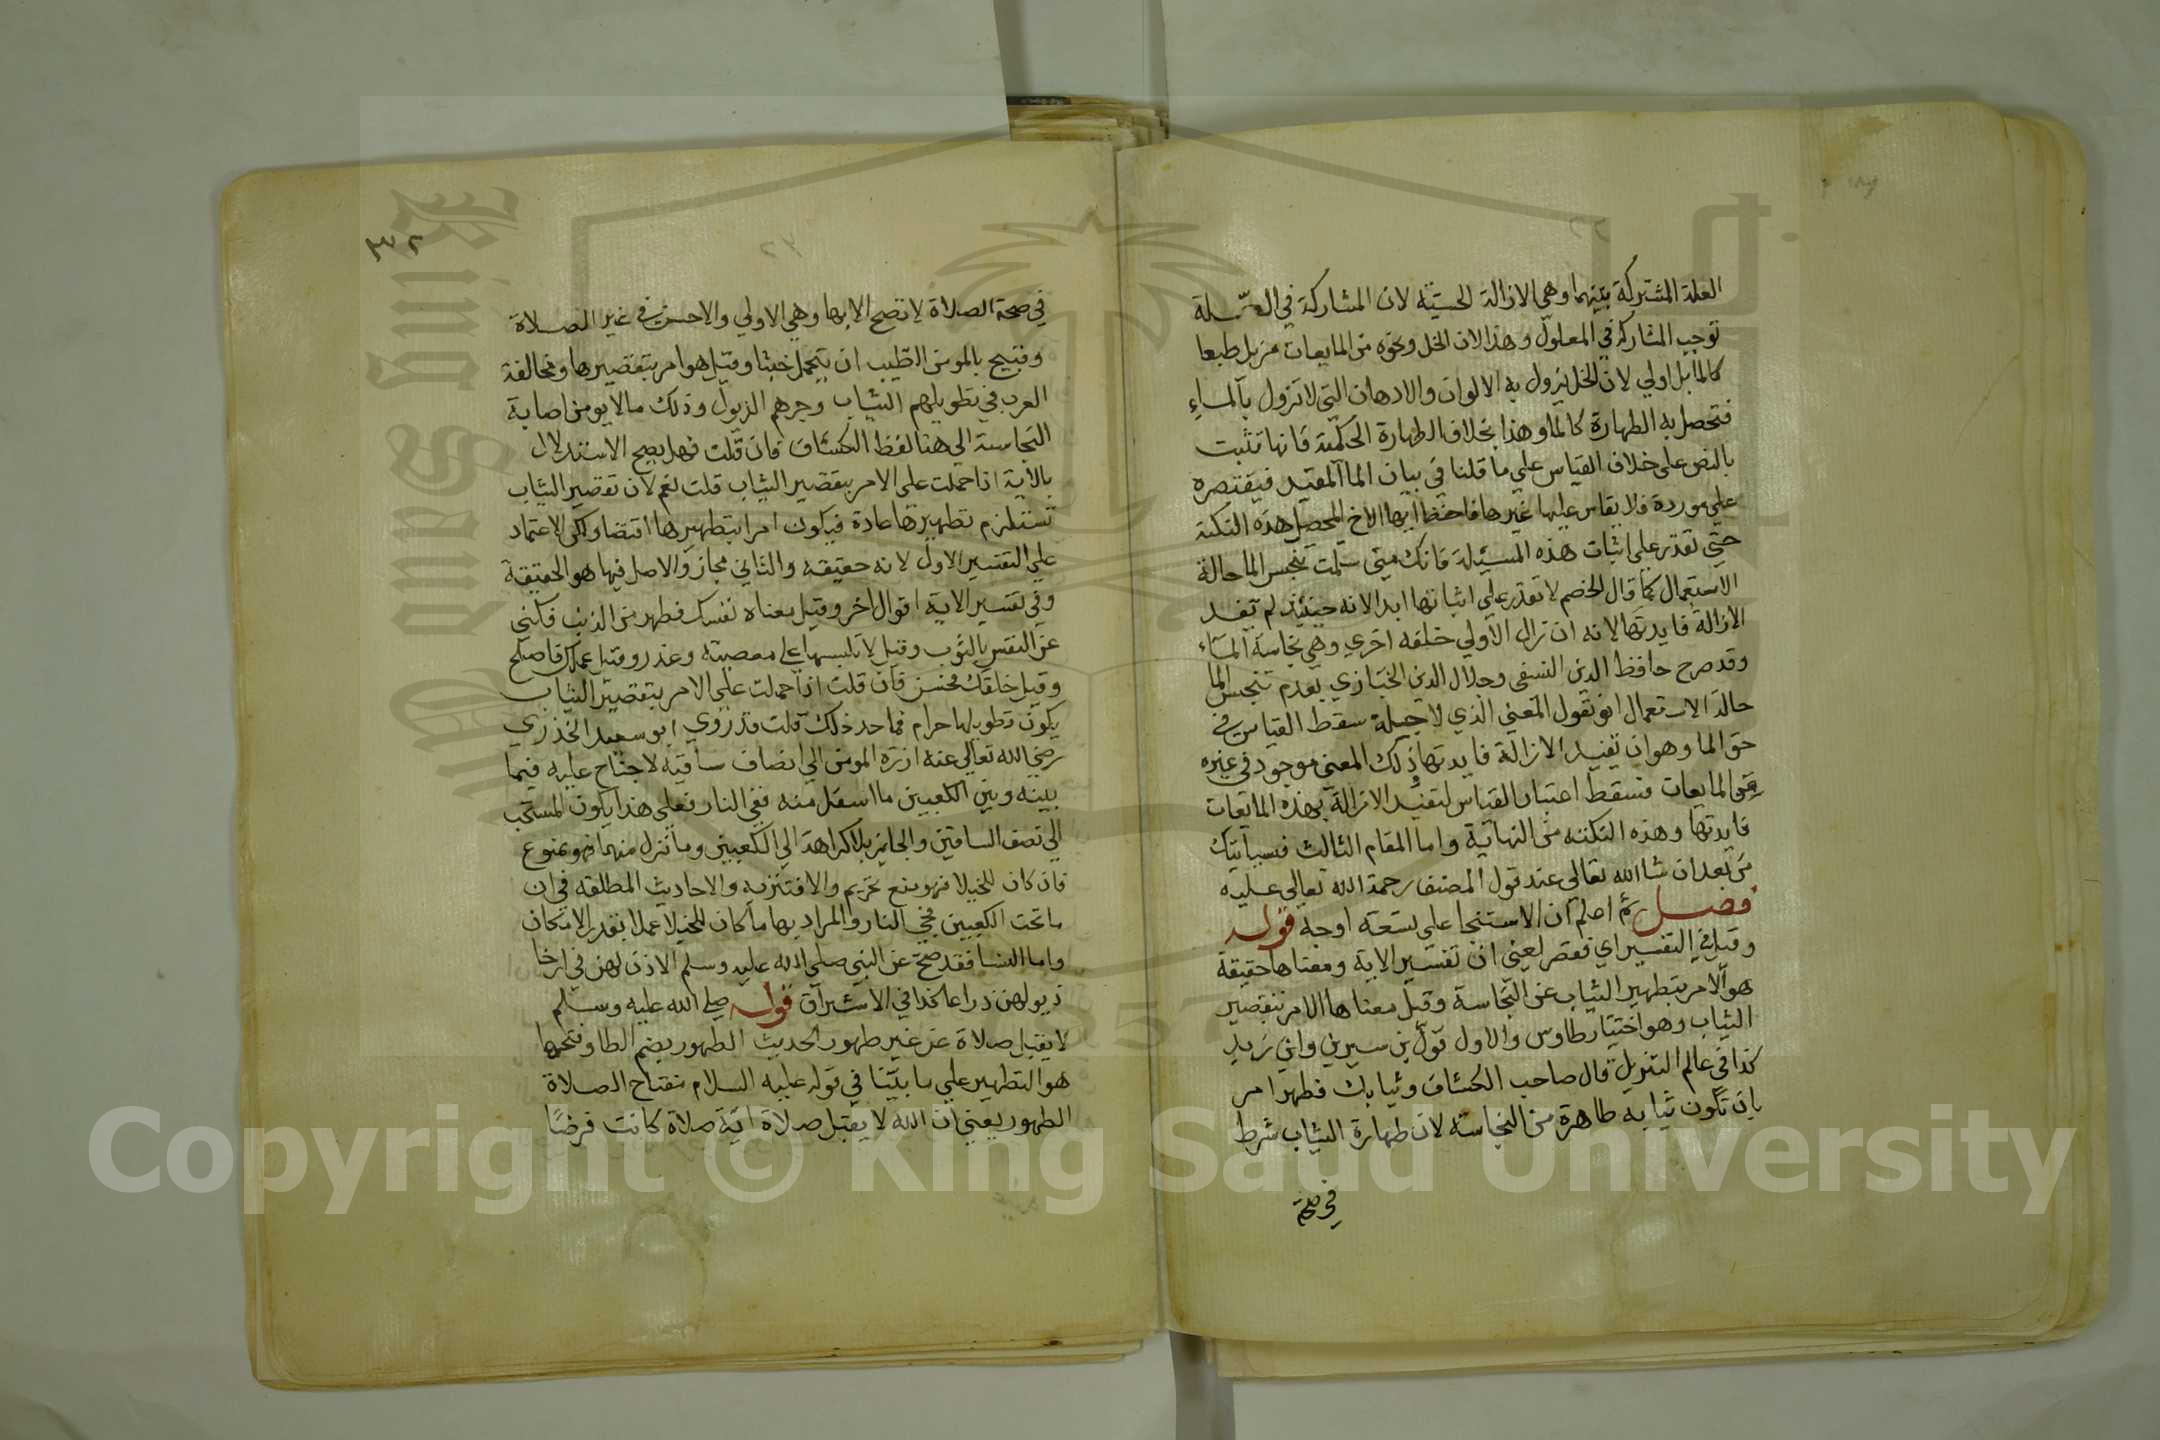 العلة المشتركة بينهما وهي الازالة الحسيته لان المشاركة في العلة
توجب المشاركة في المعلول وهذا لان الخل ونحوه من المايعات مزيل طبعا
كالما بل اولي لان الخل يزول به الالوان والادهان التي لا تزول بالماءِ
فتحصل به الطهارة كالما وهذا بخلاف الطهارة الحكمية فانها تثبت
بالنص على خلاف القياس علي ما قلنا في بيان الما المقيد فيقتصره
علي موردة فلا يقاس عليها غيرها فاحفظ ايها الاخ المحصل هذه النكتة
حتي تقدر على اثبات هذه المسئيلة فانك متي سلمت تنجس الما حالة
الاستعمال كما قال الخصم لا تقدر علي اثباتها ابدا لانه حينئذ لم تفد
الازالة فايدتها لانه ان تزال الاولي خلفه اخري وهي نجاسة المآء
وقد صرح حافظ الدين النسفي وجلال الدين الخبازي بعدم تنجس الما
حالة الاستعمال او نقول المعني الذي لاجله سقط القياس في
حق الما وهو ان تفيد الازالة فايدتها ذلك المعني موجود في غيره
من المايعات فسقط اعتبار القياس لتفيد الازالة بهذه المايعات
فايدتها وهذه النكته من النهاية واما المقام الثالث فسياتيك
من بعد ان شا الله تعالى عند قول المصنف رحمة الله تعالي عليه
فصل ثم اعلم ان الاستنجا علي تسعة اوجه قوله
وقيل في التفسير اي فقصر يعني ان تفسير الاية ومعناها حقيقة
هو الامر بتطهير الثياب عن النجاسة وقيل معناها الامر بتقصير
الثياب وهو اختيار طاوس والاول قول بن سيرين وابن زيد
كذا في عالم التنزيل قال صاحب الكشاف وثيابك فطهر امر
بان تكون ثيابه طاهرة من النجاسته لان طهارة الثياب شرط
في صحة
٣٢
في صحة الصلاة لا تصح الا بها وهي الاولي والاحسن في غير الصلاة
وقبيح بالمومن الطيب ان يحمل خبثا وقيل هو امر بتقصيرها ومخالفة
العرب في تطويلهم الثياب وجرهم الذيول وذلك مالا يومن اصابة
النجاسة الي هنا لفظ الكشاف فان قلت فهل يصح الاستدلال
بالاية اذا حملت على الامر بتقصير الثياب قلت نعم لان تقصير الثياب
تستلزم تطهيرها عادة فيكون امرا بتطهيرها اقتضا ولكن الاعتماد
علي التفسير الاول لانه حقيقه والثاني مجاز والاصل فيها هو الحقيقة
وفي تفسير الاية اقوال اخر وقيل معناه نفسك فطهر من الذنب فكني
عن النفس بالثوب وقيل لا تلبسها علي معصية وغدر وقيل عملك فاصلح
وقيل خلقك فحسن فان قلت اذا حملت على الامر بتقصير الثياب
يكون تطويلها حرام فما حد ذلك قلت قد روي ابو سعيد الخدري
رضي الله تعالي عنه ازرة المومن الي انصاف ساقيه لا جناح عليه فيما
بينه وبين الكعبين ما اسفل منه ففي النار فعلي هذا يكون المستحب
الي نصف الساقين والجايز بلا كراهة الي الكعبين وما نزل منهما فهو ممنوع
فان كان للخيلا فهو منع تحريم والا فتنزيه والاحاديث المطلقه في ان
ما تحت الكعبين في النار والمراد بها ما كان للخيلا عملا بقدر الامكان
واما النسا فقد صح عن النبي صلي الله عليه وسلم الاذن لهن في ارخا
ذيولهن ذراعا كذا في الاشراق قوله صلي الله عليه وسلم
لا يقبل صلاة من غير طهور الحديث الطهور بضم الطا وفتحها
هو التطهير علي ما بيّنا في قوله عليه السلام مفتاح الصلاة
الطهور يعني ان الله لا يقبل صلاة اية صلاة كانت فرضًا
King Saud University
1957
Copyright © King Saud University